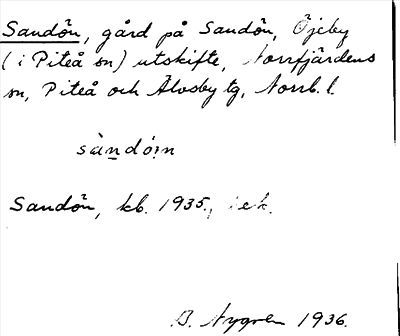 Sandön, gård på Sandön, Öjeby
(i Piteå sn) utskifte, Norrfjärdens
sn, Piteå och Älvsby tg, Norrb. l.
sàndó̤n
Sandön, kb. 1935., i ek.
B. Nygren 1936.